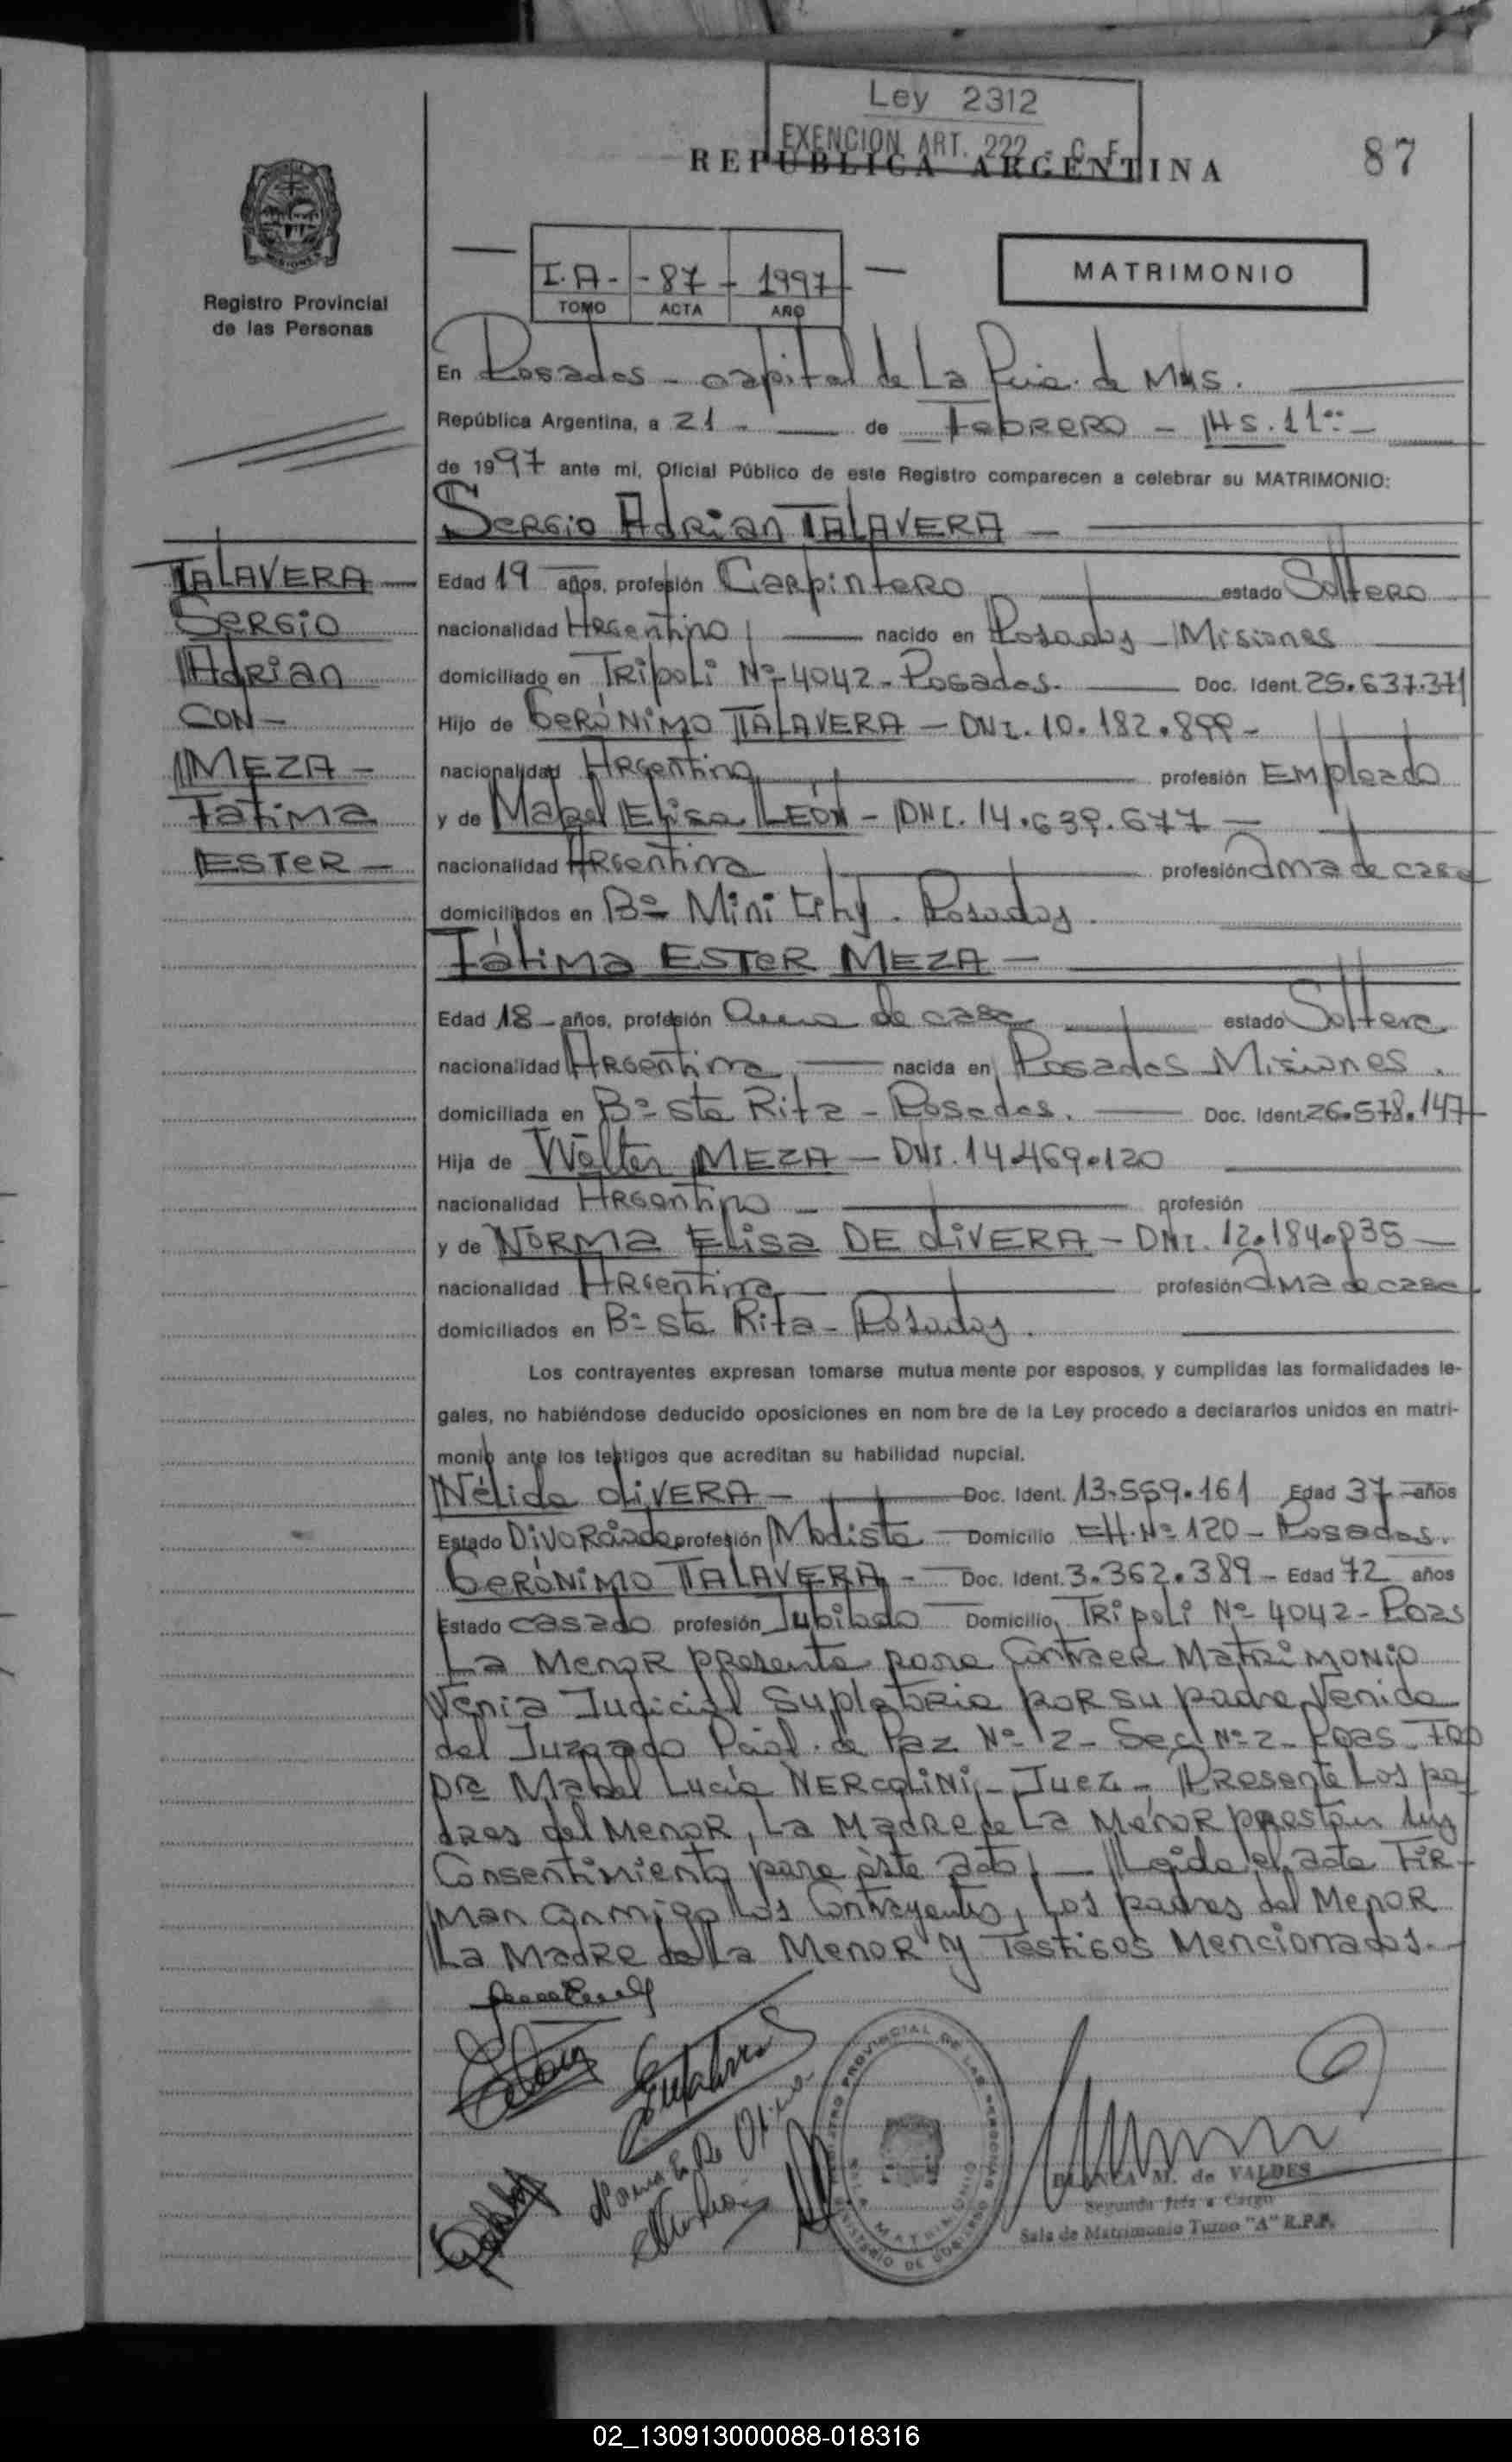 Ley 2312
EXENCION ART. 222 - C. F.
REPUBLICA ARGENTINA
87
Registro Provincial
de las Personas
I.A - - 87 - 1997
TOMO ACTA AÑO
MATRIMONIO
En Posadas - capital de La Pcia. de Mns.
República Argentina, a 21 - de Febrero - Hs. 11:00 -
de 1997 ante mí, Oficial Público de este Registro comparecen a celebrar su MATRIMONIO:
Sergio Adrian TALAVERA —
TALAVERA —
Sergio
Adrian
CON —
MEZA —
Fatima
ESTER —
Edad 19 años, profesión Carpintero estado Soltero
nacionalidad Argentino nacido en Posadas - Misiones
domiciliado en Tripoli Nº 4042 - Posadas. Doc. Ident. 25.637.371
Hijo de GERÓNIMO TALAVERA — DNI. 10.182.899 -
nacionalidad Argentino profesión Empleado
y de Mabel Elisa LEÓN - DNI. 14.639.677 —
nacionalidad Argentina profesión Ama de casa
domiciliados en Bº Mini City. Posadas.
Fátima ESTER MEZA —
Edad 18 - años, profesión Ama de casa estado Soltera
nacionalidad Argentina nacida en Posadas Misiones.
domiciliada en Bº Sta Rita - Posadas. Doc. Ident. 26.578.147
Hija de Walter MEZA — DNI. 14.469.120
nacionalidad Argentino — profesión
y de NORMA Elisa DE OLIVERA - DNI. 12.184.035 —
nacionalidad Argentina profesión Ama de casa
domiciliados en Bº Sta Rita - Posadas.
Los contrayentes expresan tomarse mutua mente por esposos, y cumplidas las formalidades le-
gales, no habiéndose deducido oposiciones en nom bre de la Ley procedo a declararlos unidos en matri-
monio ante los testigos que acreditan su habilidad nupcial.
Nélida OLIVERA — Doc. Ident. 13.559.161 Edad 37 años
Estado Divorciada profesión Modista Domicilio CH. Nº 120 - Posadas.
GERÓNIMO TALAVERA - Doc. Ident. 3.362.389 - Edad 72 años
Estado casado profesión Jubilado Domicilio Tripoli Nº 4042 - Poas
La Menor presenta para Contraer Matrimonio
Venia Judicial Supletoria por su padre Venida
del Juzgado Pcial. de Paz Nº 2 - Sec. Nº 2 - Poas - FDO
Dra Mabel Lucia NERCOLINI - Juez - Presente Los pa
dres del Menor, La Madre de La Menor prestan sus
Consentimiento para éste acto. — Leida el acta Fir
man conmigo los Contrayentes, Los padres del Menor
La Madre de La Menor y Testigos Mencionados. -
Norma E. De Olivera
REGISTRO PROVINCIAL DE LAS PERSONAS
MINISTERIO DE GOBIERNO
SALA MATRIMONIO
BLANCA M. de VALDES
Segunda Jefa a Cargo
Sala de Matrimonio Turno "A" R.P.P.
02_130913000088-018316